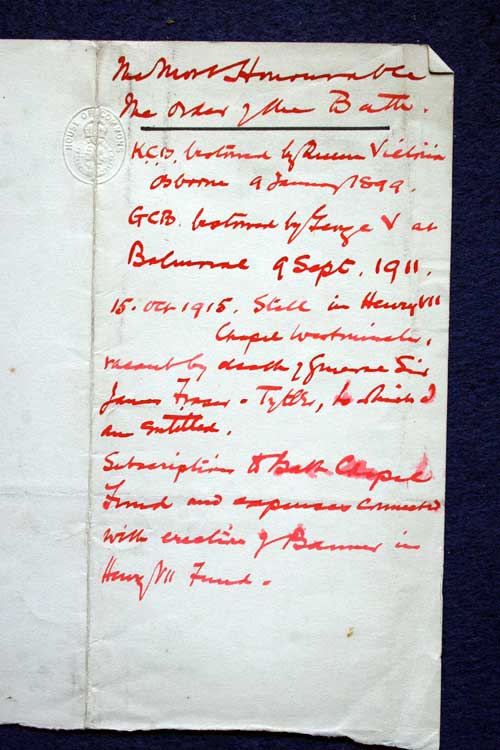 The Most Honourable
The Order of the Bath.
K.C.B. bestowed by Queen Victoria
Osborne 9 January 1899.
GCB. bestowed by George V at
Balmoral 9 Sept. 1911.
15. Oct 1915. Stall in Henry VII
Chapel Westminster,
vacant by death of General Sir
James Fraser-Tytler, to which I
am entitled.
Subscription to Bath Chapel
Fund and expenses connected
with erection of Banner in
Henry VII Fund.
HOUSE OF COMMONS